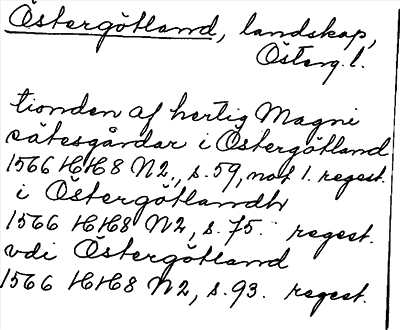 Östergötland, landskap,
Österg.l.
tionden af hertig Magni
sätesgårdar i Östergötland
1566 HH8 N2., s.59, not 1. regest.
i Östergötlandh
1566 HH8 N2, s.75. regest.
vdi Östergötland
1566 HH8 N2, s.93. regest.